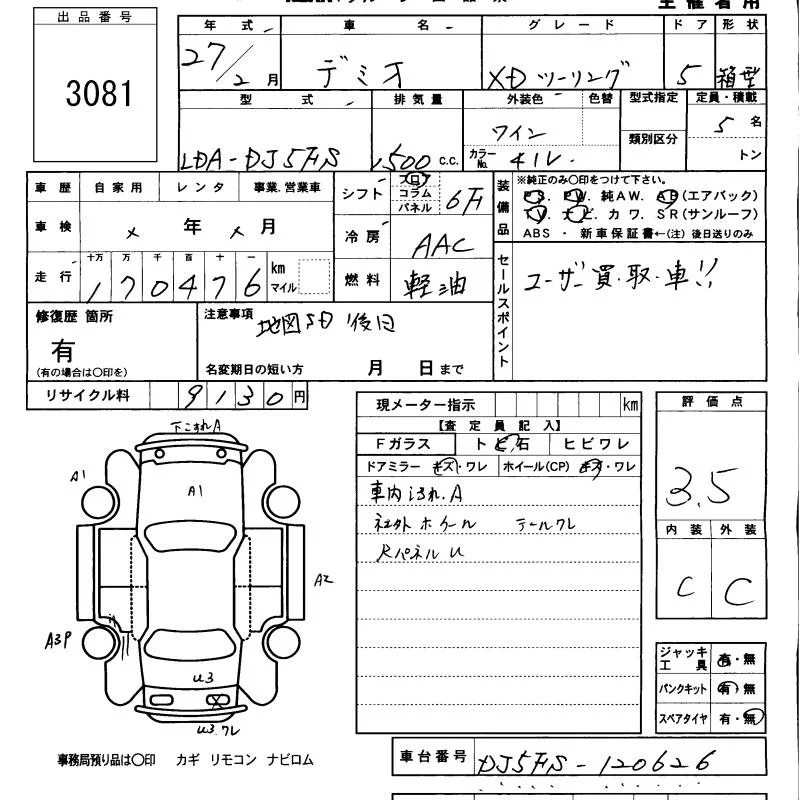 主催者用
出品番号
3081
年式 車名 グレード ドア 形状
27/2月 デミオ XDツーリング 5 箱型
型式 排気量 外装色 色替 型式指定 定員・積載
LDA-DJ5FS 1,500 c.c. ワイン 類別区分 5名
カラーNo. 41V トン
車歴 自家用 レンタ 事業.営業車
シフト フロ コラム パネル 6F
装備品 ※純正のみ〇印をつけて下さい。
PS. PW. 純AW. AB(エアバック)
TV. ナビ. カワ. SR(サンルーフ)
ABS ・ 新車保証書←(注) 後日送りのみ
車検 × 年 × 月
冷房 AAC
走行 十万 万 千 百 十 一 km マイル
170476
燃料 軽油
セールスポイント ユーザー買・取・車!!
修復歴 箇所
有
(有の場合は〇印を)
注意事項 地図SD 後日
名変期日の短い方 月 日まで
リサイクル料 9130円
現メーター指示 km
評価点
3.5
【査定員記入】
Fガラス トビ石 ヒビワレ
ドアミラー キズ・ワレ ホイール(CP) キズ・ワレ
車内汚れ.A
社外ホイール テールワレ
Rパネル U
内装 外装
C C
下こすれA
A1
A1
A2
A3P
U3
U3.ワレ
ジャッキ工具 有・無
パンクキット 有・無
スペアタイヤ 有・無
事務局預り品は〇印 カギ リモコン ナビロム
車台番号 DJ5FS-120626